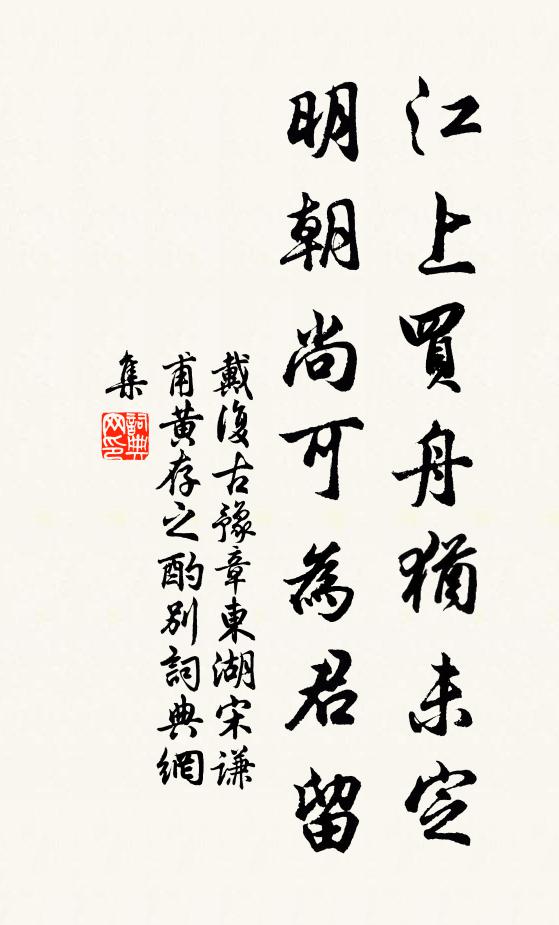 江上買舟猶未定
明朝尚可為君留
戴復古豫章東湖宋謙
甫黃存之酌別詞典網
集
詞典
网印